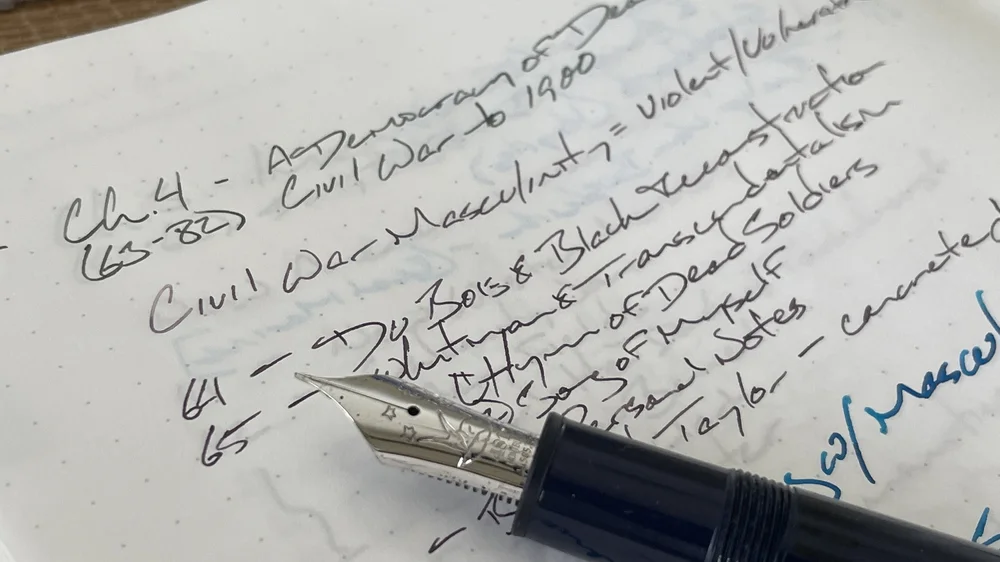 Ch. 4 - A Democracy of
(63-82) Civil War to 1900
Civil War Masculinity = Violent/
64 - Du Bois & Black Reconstruction
65 - Whitman & Transcendentalism
Hymn of Dead Soldiers
Song of Myself
Notes
Taylor -